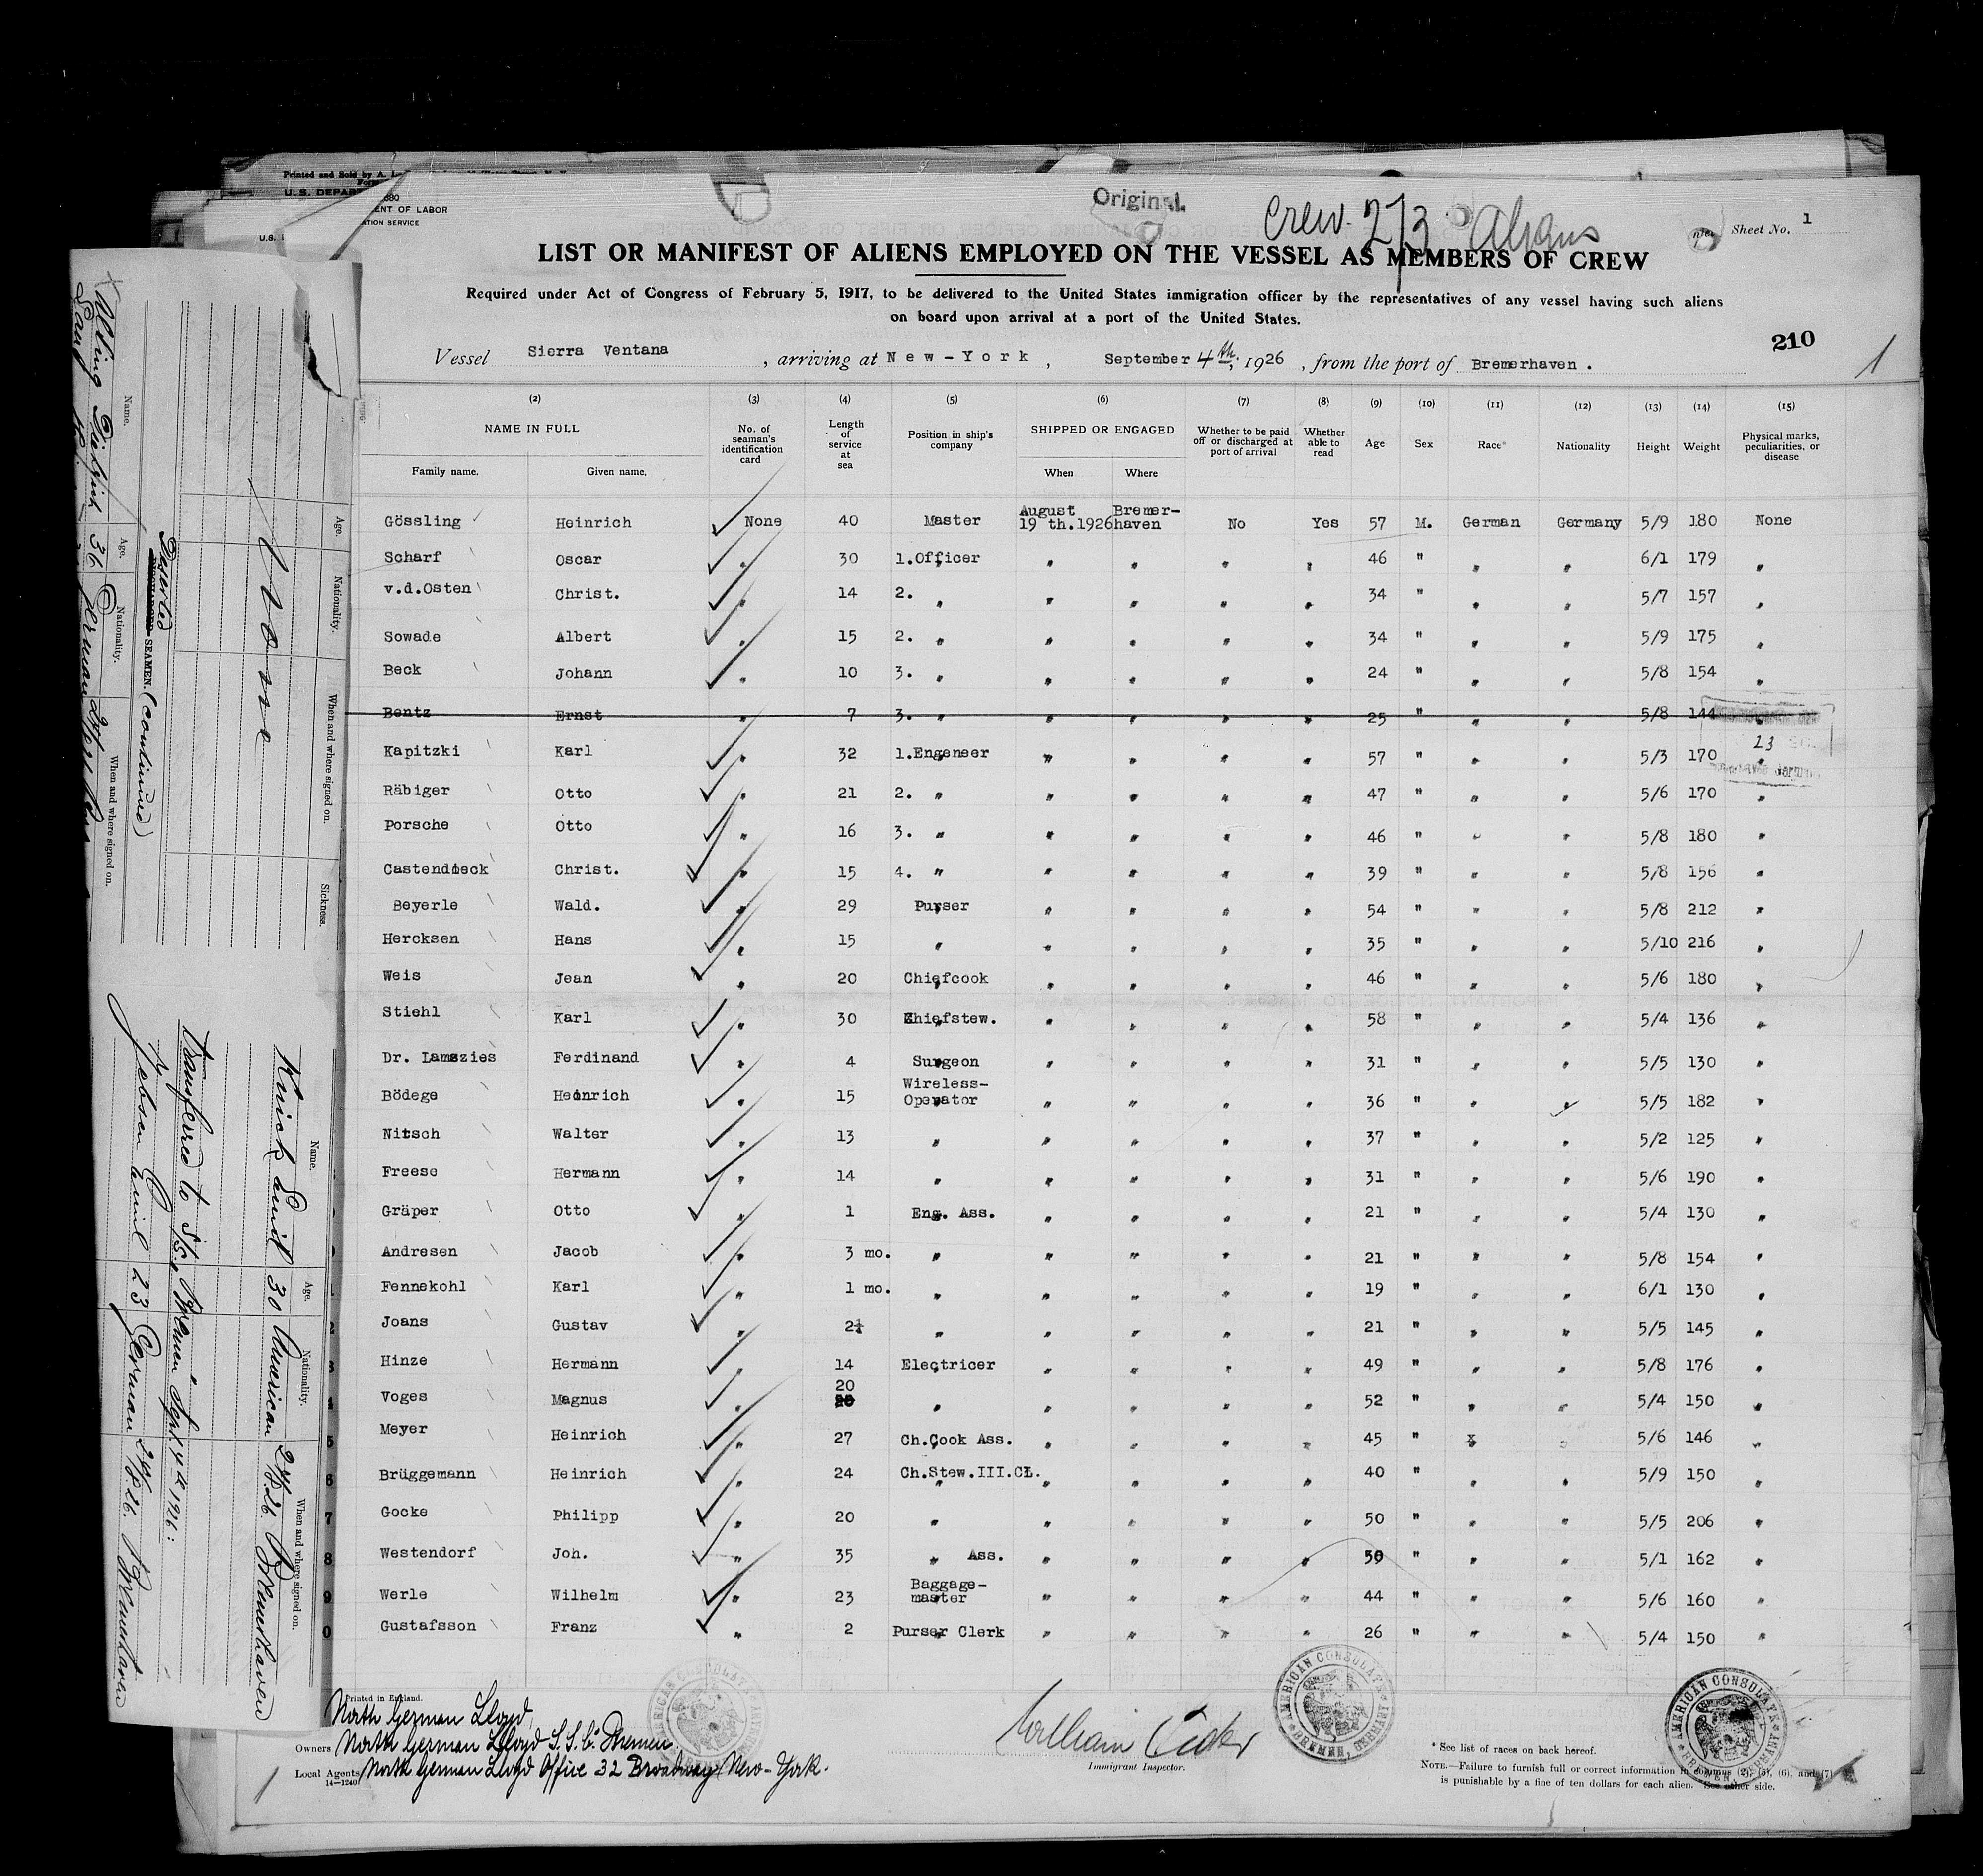 Printed and Sold by A. L
U.S. DEPAR
680
ENT OF LABOR
TION SERVICE
U.S.
Original
Crew. 273 Aliens
Sheet No. 1
LIST OR MANIFEST OF ALIENS EMPLOYED ON THE VESSEL AS MEMBERS OF CREW
Required under Act of Congress of February 5, 1917, to be delivered to the United States immigration officer by the representatives of any vessel having such aliens
on board upon arrival at a port of the United States.
210
1
Vessel Sierra Ventana , arriving at New-York , September 4th, 1926 , from the port of Bremerhaven .
(2) (3) (4) (5) (6) (7) (8) (9) (10) (11) (12) (13) (14) (15)
NAME IN FULL
Family name. Given name.
No. of seaman's identification card
Length of service at sea
Position in ship's company
SHIPPED OR ENGAGED
When Where
Whether to be paid off or discharged at port of arrival
Whether able to read
Age
Sex
Race*
Nationality
Height
Weight
Physical marks, peculiarities, or disease
Gössling Heinrich None 40 Master August 19 th.1926 Bremer-haven No Yes 57 M. German Germany 5/9 180 None
Scharf Oscar " 30 1.Officer " " " " 46 " " " 6/1 179 "
v.d.Osten Christ. " 14 2. " " " " " 34 " " " 5/7 157 "
Sowade Albert " 15 2. " " " " " 34 " " " 5/9 175 "
Beck Johann " 10 3. " " " " " 24 " " " 5/8 154 "
Bentz Ernst " 7 3. " " " " " 25 " " " 5/8 144 "
Kapitzki Karl " 32 1.Engeneer " " " " 57 " " " 5/3 170 "
Räbiger Otto " 21 2. " " " " " 47 " " " 5/6 170 "
Porsche Otto " 16 3. " " " " " 46 " " " 5/8 180 "
Castendieck Christ. " 15 4. " " " " " 39 " " " 5/8 156 "
Beyerle Wald. " 29 Purser " " " " 54 " " " 5/8 212 "
Hercksen Hans " 15 " " " " " 35 " " " 5/10 216 "
Weis Jean " 20 Chiefcook " " " " 46 " " " 5/6 180 "
Stiehl Karl " 30 Chiefstew. " " " " 58 " " " 5/4 136 "
Dr. Lamszies Ferdinand " 4 Surgeon " " " " 31 " " " 5/5 130 "
Bödege Heinrich " 15 Wireless-Operator " " " " 36 " " " 5/5 182 "
Nitsch Walter " 13 " " " " " 37 " " " 5/2 125 "
Freese Hermann " 14 " " " " " 31 " " " 5/6 190 "
Gräper Otto " 1 Eng. Ass. " " " " 21 " " " 5/4 130 "
Andresen Jacob " 3 mo. " " " " " 21 " " " 5/8 154 "
Fennekohl Karl " 1 mo. " " " " " 19 " " " 6/1 130 "
2 Joans Gustav " 2½ " " " " " 21 " " " 5/5 145 "
3 Hinze Hermann " 14 Electricer " " " " 49 " " " 5/8 176 "
4 Voges Magnus " 20 " " " " " 52 " " " 5/4 150 "
5 Meyer Heinrich " 27 Ch.Cook Ass. " " " " 45 " " " 5/6 146 "
6 Brüggemann Heinrich " 24 Ch.Stew.III.Cl. " " " " 40 " " " 5/9 150 "
7 Gocke Philipp " 20 " " " " " 50 " " " 5/5 206 "
8 Westendorf Joh. " 35 " Ass. " " " " 50 " " " 5/1 162 "
9 Werle Wilhelm " 23 Baggage-master " " " " 44 " " " 5/6 160 "
0 Gustafsson Franz " 2 Purser Clerk " " " " 26 " " " 5/4 150 "
Printed in England.
North German Lloyd
Owners North German Lloyd S.S.C. Bremen.
Local Agents North German Lloyd Office 32 Broadway New-York.
14—1240
Immigrant Inspector.
AMERICAN CONSULATE
BREMEN, GERMANY
AMERICAN CONSULATE
BREMEN, GERMANY
* See list of races on back hereof.
NOTE.—Failure to furnish full or correct information in columns (2), (5), (6), and (7)
is punishable by a fine of ten dollars for each alien. See other side.
Age. Nationality. When and where signed on. Sickness.
None
Deserted
SEAMEN. (continued)
Name. Age. Nationality. When and where signed on.
Dietrich 36 German
Name. Age. Nationality. When and where signed on.
Emil 30 American 24/8.26. Bremerhaven
Transferred to S/S. Bremen Sept 4th 1926:
Jebsen Emil 23 German 24/8.26. Bremerhaven